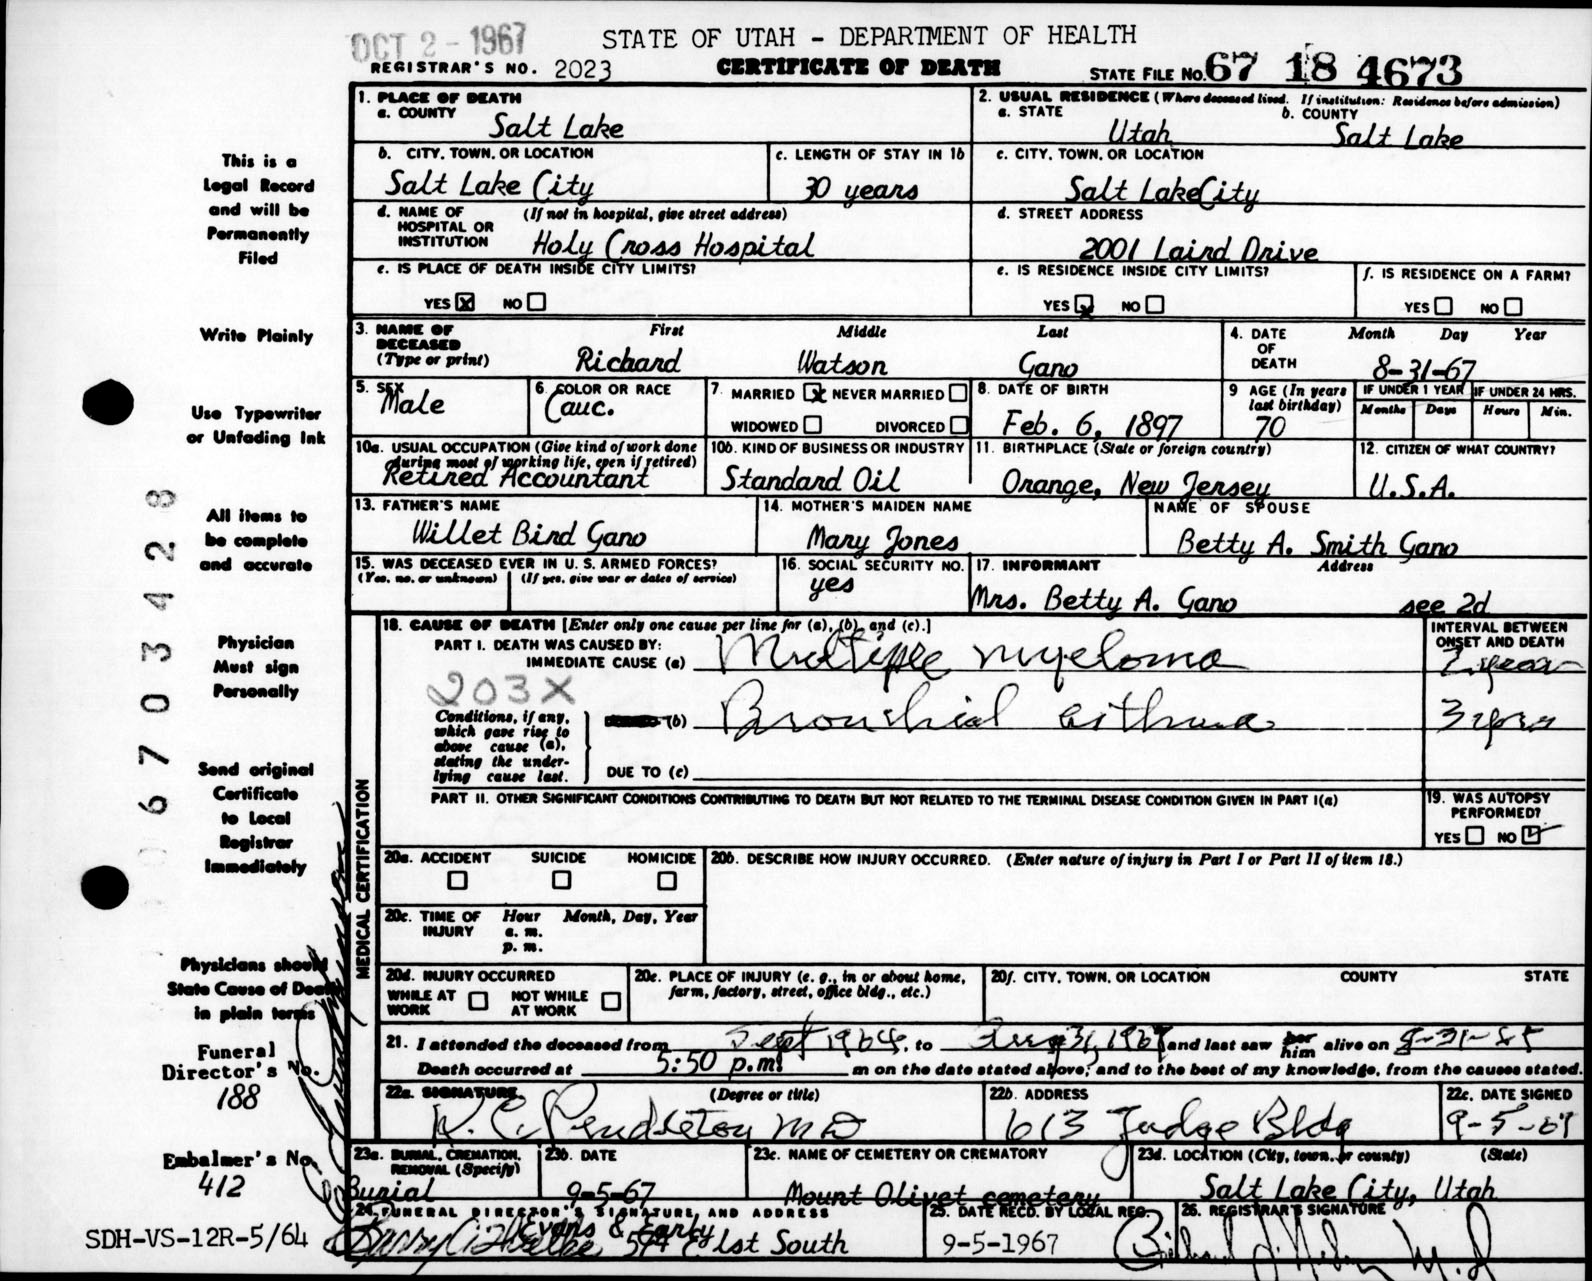 OCT 2 - 1967
STATE OF UTAH - DEPARTMENT OF HEALTH
REGISTRAR'S NO. 2023
CERTIFICATE OF DEATH
STATE FILE NO. 67 18 4673
This is a
Legal Record
and will be
Permanently
Filed
Write Plainly
Use Typewriter
or Unfading Ink
All items to
be complete
and accurate
Physician
Must sign
Personally
Send original
Certificate
to Local
Registrar
Immediately
Physicians should
State Cause of Death
in plain terms
Funeral
Director's No.
188
Embalmer's No.
412
SDH-VS-12R-5/64
06703428
1. PLACE OF DEATH
a. COUNTY
Salt Lake
2. USUAL RESIDENCE (Where deceased lived. If institution: Residence before admission)
a. STATE
Utah
b. COUNTY
Salt Lake
b. CITY, TOWN, OR LOCATION
Salt Lake City
c. LENGTH OF STAY IN 1b
30 years
c. CITY, TOWN, OR LOCATION
Salt Lake City
d. NAME OF HOSPITAL OR INSTITUTION
(If not in hospital, give street address)
Holy Cross Hospital
d. STREET ADDRESS
2001 Laird Drive
e. IS PLACE OF DEATH INSIDE CITY LIMITS?
YES X NO
e. IS RESIDENCE INSIDE CITY LIMITS?
YES X NO
f. IS RESIDENCE ON A FARM?
YES NO
3. NAME OF DECEASED
(Type or print)
First Middle Last
Richard Watson Gano
4. DATE OF DEATH
Month Day Year
8-31-67
5. SEX
Male
6. COLOR OR RACE
Cauc.
7. MARRIED X NEVER MARRIED
WIDOWED DIVORCED
8. DATE OF BIRTH
Feb. 6, 1897
9 AGE (In years last birthday)
70
IF UNDER 1 YEAR
Months Days
IF UNDER 24 HRS.
Hours Min.
10a. USUAL OCCUPATION (Give kind of work done
during most of working life, even if retired)
Retired Accountant
10b. KIND OF BUSINESS OR INDUSTRY
Standard Oil
11. BIRTHPLACE (State or foreign country)
Orange, New Jersey
12. CITIZEN OF WHAT COUNTRY?
U.S.A.
13. FATHER'S NAME
Willet Bird Gano
14. MOTHER'S MAIDEN NAME
Mary Jones
NAME OF SPOUSE
Betty A. Smith Gano
15. WAS DECEASED EVER IN U. S. ARMED FORCES?
(Yes, no, or unknown) (If yes, give war or dates of service)
16. SOCIAL SECURITY NO.
yes
17. INFORMANT Address
Mrs. Betty A. Gano see 2d
MEDICAL CERTIFICATION
18. CAUSE OF DEATH [Enter only one cause per line for (a), (b), and (c).]
INTERVAL BETWEEN
ONSET AND DEATH
PART I. DEATH WAS CAUSED BY:
IMMEDIATE CAUSE (a) Multiple myeloma
203X
Conditions, if any,
which gave rise to
above cause (a),
stating the under-
lying cause last.
(b) Bronchial asthma
3 yrs
DUE TO (c)
PART II. OTHER SIGNIFICANT CONDITIONS CONTRIBUTING TO DEATH BUT NOT RELATED TO THE TERMINAL DISEASE CONDITION GIVEN IN PART I(a)
19. WAS AUTOPSY
PERFORMED?
YES NO
20a. ACCIDENT SUICIDE HOMICIDE
20b. DESCRIBE HOW INJURY OCCURRED. (Enter nature of injury in Part I or Part II of item 18.)
20c. TIME OF INJURY
Hour Month, Day, Year
a. m.
p. m.
20d. INJURY OCCURRED
WHILE AT WORK NOT WHILE AT WORK
20e. PLACE OF INJURY (e. g., in or about home,
farm, factory, street, office bldg., etc.)
20f. CITY, TOWN, OR LOCATION COUNTY STATE
21. I attended the deceased from Sept 1964, to Aug 31, 1967 and last saw her him alive on 8-31-67
Death occurred at 5:50 p.m. m on the date stated above; and to the best of my knowledge, from the causes stated.
22a. SIGNATURE (Degree or title)
K. C. Pendleton MD
22b. ADDRESS
613 Judge Bldg
22c. DATE SIGNED
9-5-67
23a. BURIAL, CREMATION,
REMOVAL (Specify)
Burial
23b. DATE
9-5-67
23c. NAME OF CEMETERY OR CREMATORY
Mount Olivet cemetery
23d. LOCATION (City, town, or county) (State)
Salt Lake City, Utah
24. FUNERAL DIRECTOR'S SIGNATURE, AND ADDRESS
Evans & Early
574 E 1st South
25. DATE RECD. BY LOCAL REG.
9-5-1967
26. REGISTRAR'S SIGNATURE